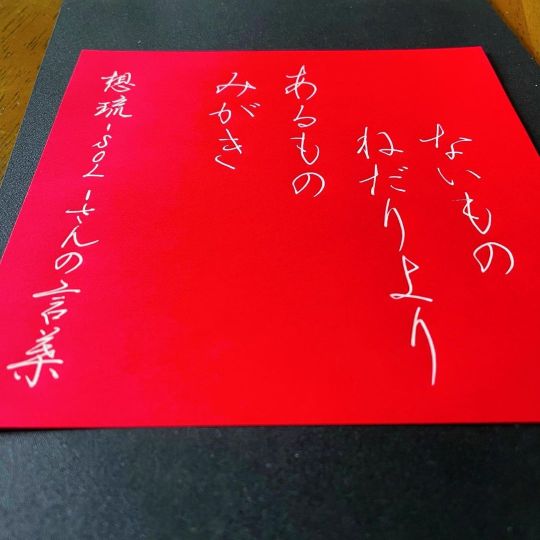 ないもの
ねだりより
あるもの
みがき
想琉-SOL-さんの言葉